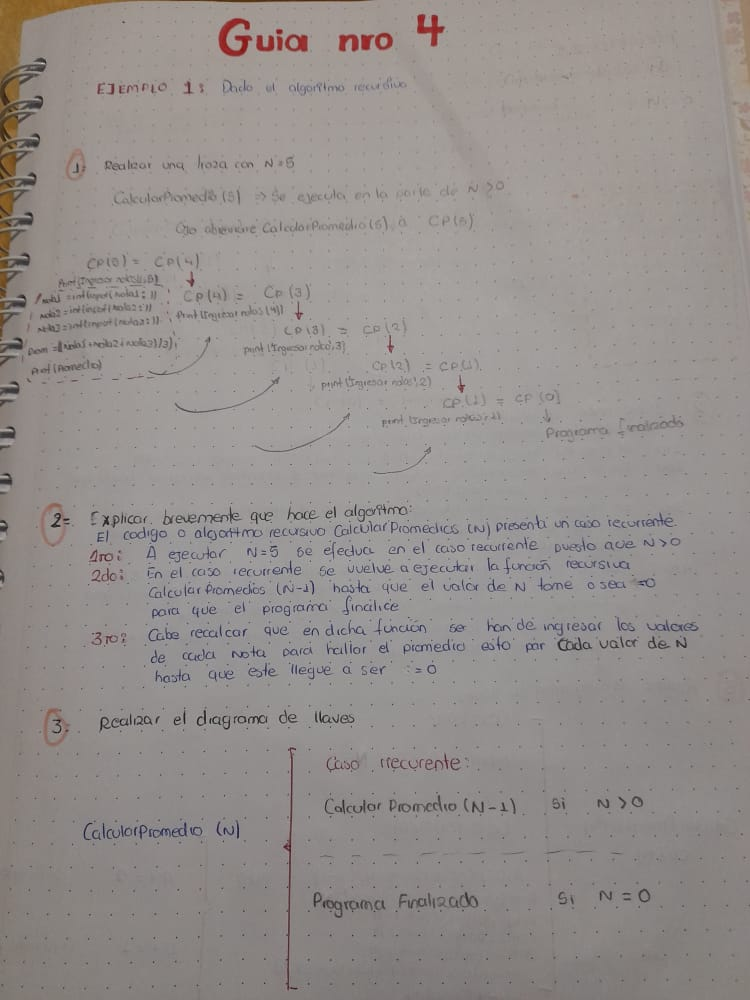 Guia nro 4
EJEMPLO 1: Dado el algoritmo recursivo
1: Realizar una traza con N=5
CalcularPromedio(5) => Se ejecuta en la parte de N>0
Ojo abreviare CalcularPromedio(5) a CP(5)
CP(5) = CP(4)
Print(Ingresar notas(i,5)
nota1 = int(input(nota1: ))
nota2 = int(input(nota2: ))
nota3 = int(input(nota3: ))
Prom = ((nota1+nota2+nota3)/3)
Print(Promedio)
CP(4) = CP(3)
Print(Ingresar notas(4))
CP(3) = CP(2)
print(Ingresar nota',3)
CP(2) = CP(1)
print(Ingresar notas',2)
CP(1) = CP(0)
print(Ingresar notas
Programa finalizado
2= Explicar brevemente que hace el algoritmo:
El codigo o algoritmo recursivo CalcularPromedios (N) presenta un caso recurrente.
1ro: A ejecutar N=5 se efectua en el caso recurrente puesto que N>0
2do: En el caso recurrente se vuelve a ejecutar la función recursiva
CalcularPromedios (N-1) hasta que el valor de N tome o sea =0
para que el programa finalice
3ro: Cabe recalcar que en dicha función se han de ingresar los valores
de cada nota para hallar el promedio esto por cada valor de N
hasta que este llegue a ser :=0
3: Realizar el diagrama de llaves
Caso rrecurente:
CalcularPromedio (N)
Calcular Promedio (N-1) si N>0
Programa Finalizado Si N=0